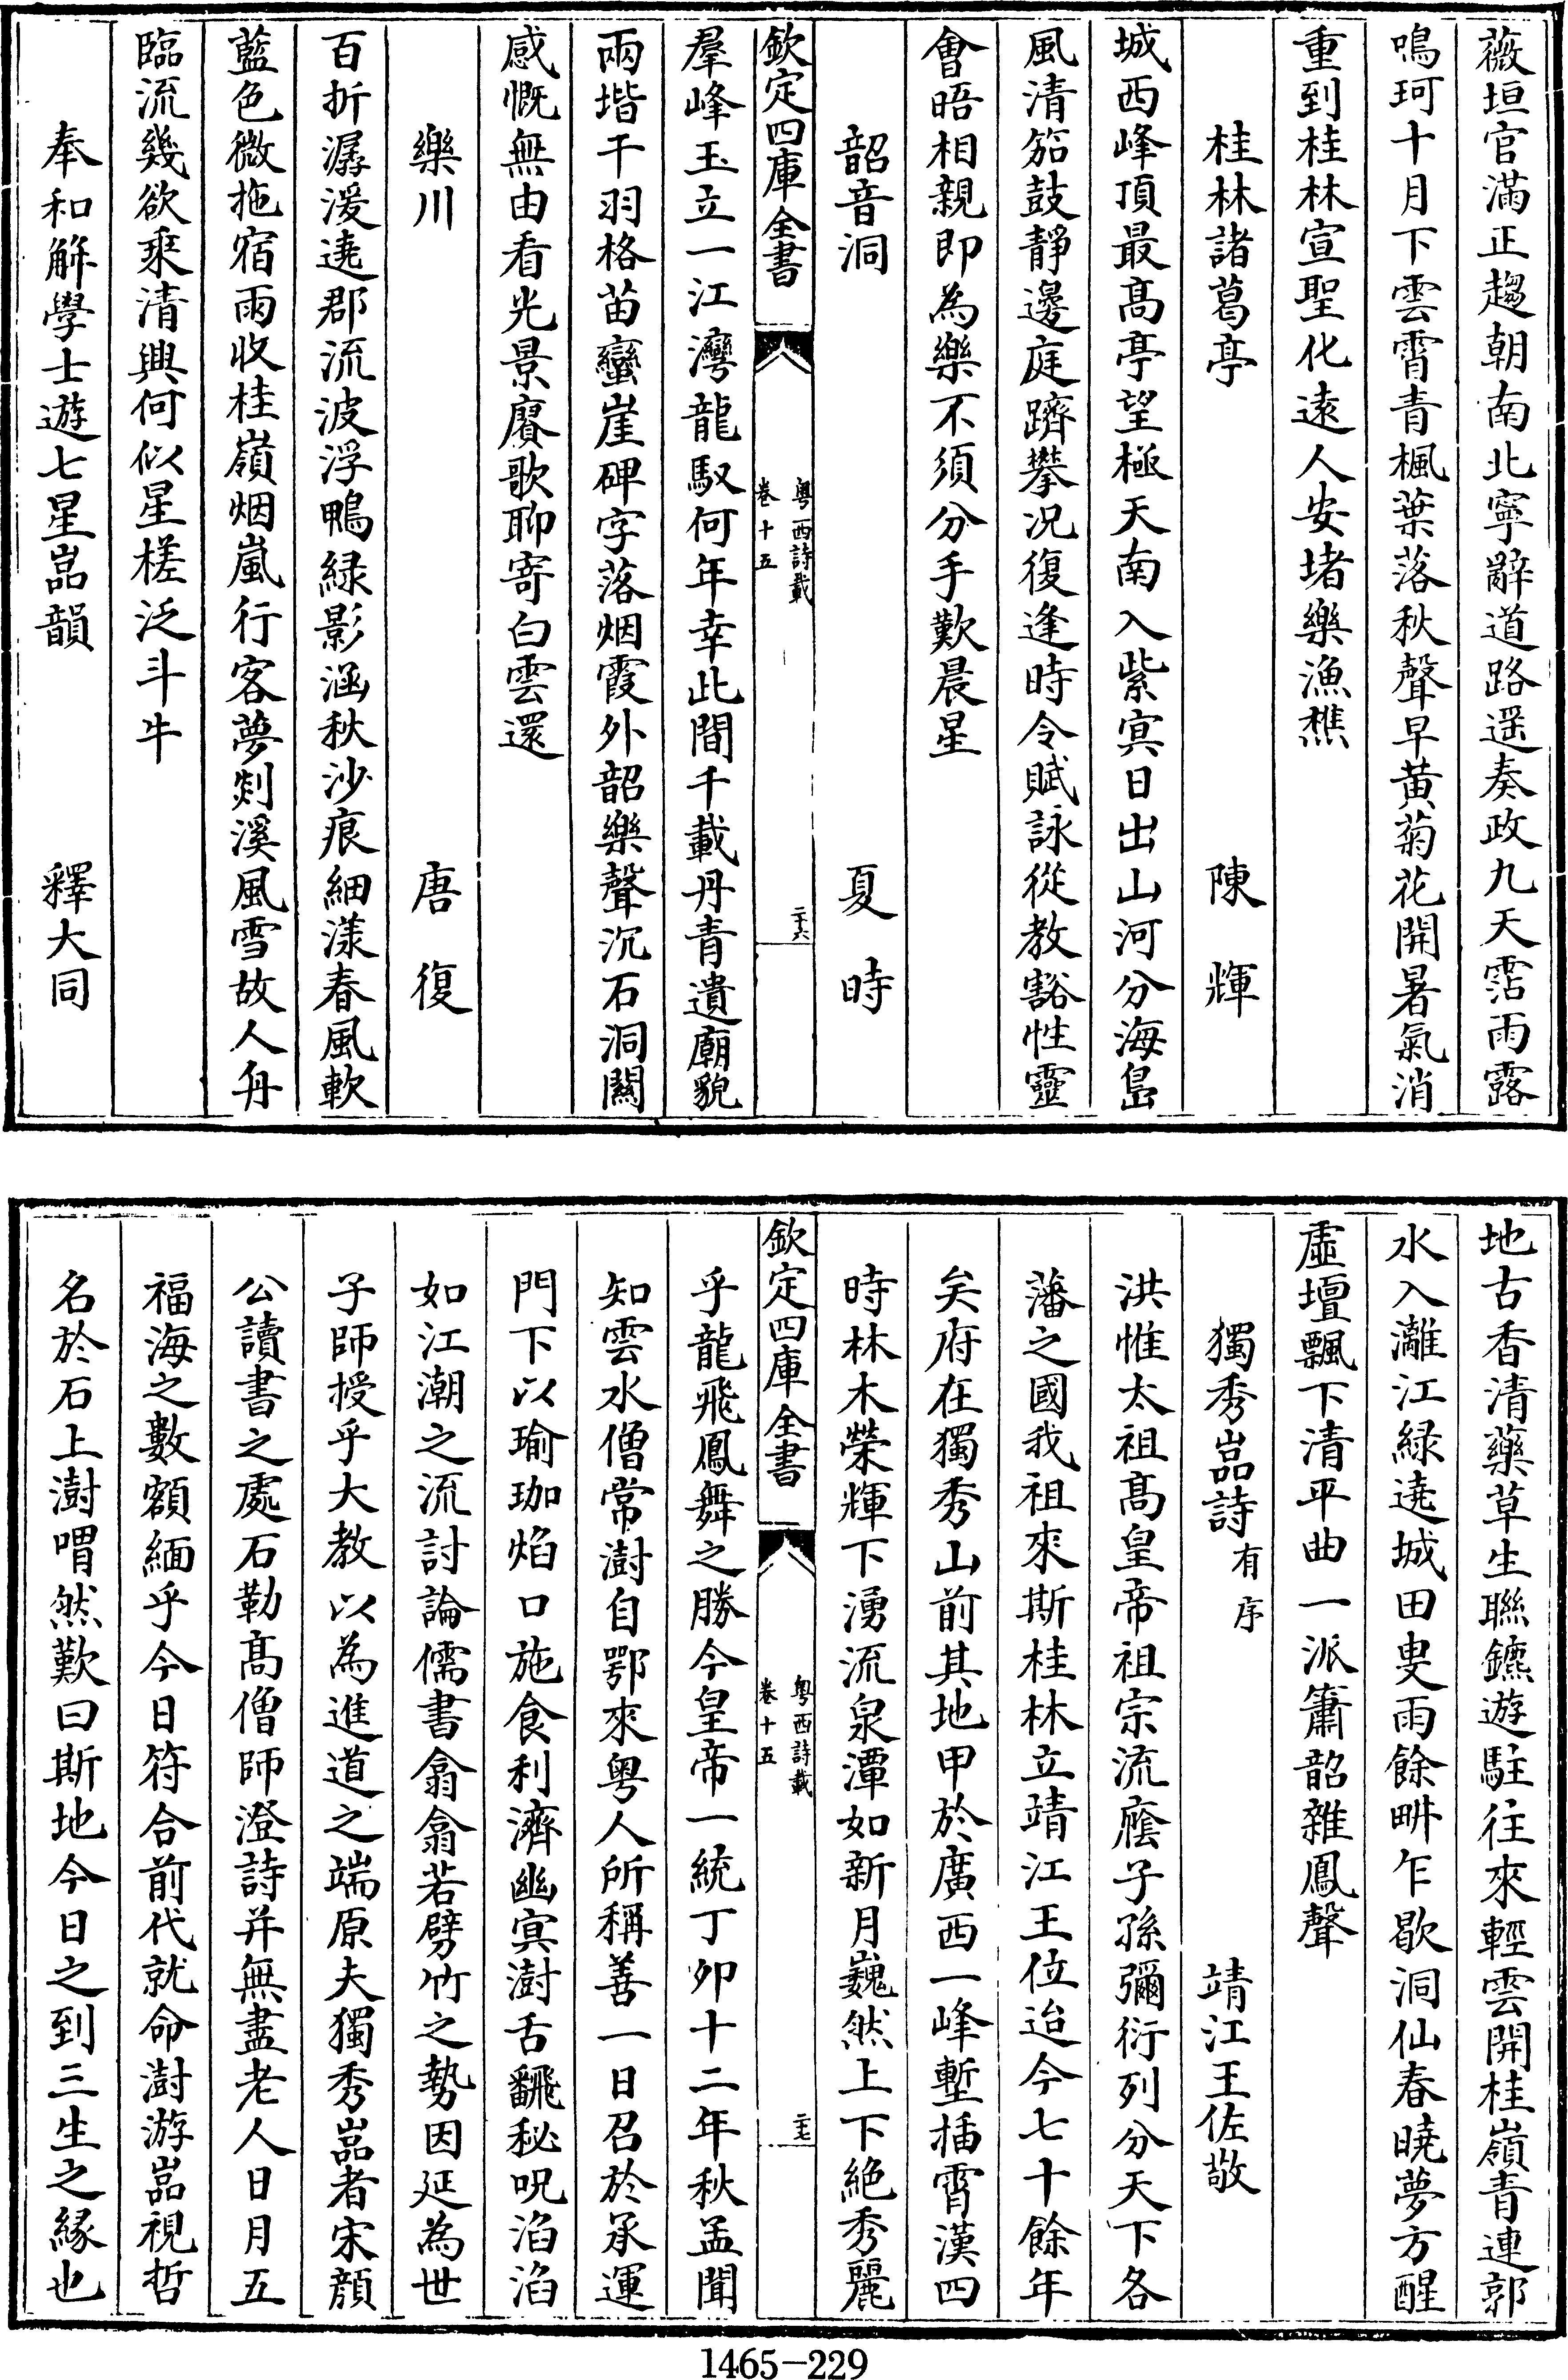 薇垣官滿正趨朝南北寧辭道路遥奏政九天霑雨露
鳴珂十月下雲霄青楓葉落秋聲早黄菊花開暑氣消
重到桂林宣聖化逺人安堵樂漁樵
桂林諸葛亭　陳輝
城西峰頂最髙亭望極天南入紫㝠日出山河分海島
風清笳鼓靜邊庭躋攀况復逢時令賦詠從教豁性靈
會晤相親即為樂不須分手歎晨星
韶音洞　夏時
欽定四庫全書　粤西詩載卷十五　二十六
羣峰玉立一江灣龍馭何年幸此間千載丹青遺廟貌
兩堦干羽格苗蠻崖碑字落烟霞外韶樂聲沉石洞闗
感慨無由看光景賡歌聊寄白雲還
樂川　唐復
百折潺湲遶郡流波浮鴨緑影涵秋沙痕細漾春風軟
藍色微拖宿雨收桂嶺烟嵐行客夢剡溪風雪故人舟
臨流幾欲乘清興何似星槎泛斗牛
奉和解學士遊七星嵓韻　釋大同
地古香清藥草生聯鑣遊駐往來輕雲開桂嶺青連郭
水入灕江緑遶城田叟雨餘畊乍歇洞仙春曉夢方醒
虚壇飄下清平曲一派簫韶雜鳳聲
獨秀嵓詩有序　靖江王佐敬
洪惟太祖髙皇帝祖宗流廕子孫彌衍列分天下各
藩之國我祖來斯桂林立靖江王位迨今七十餘年
矣府在獨秀山前其地甲於廣西一峰塹插霄漢四
時林木榮輝下湧流泉潭如新月巍然上下絶秀麗
欽定四庫全書　粤西詩載卷十五　二十七
乎龍飛鳳舞之勝今皇帝一統丁夘十二年秋孟聞
知雲水僧常澍自鄂來粤人所稱善一日召於承運
門下以瑜珈焰口施食利濟幽㝠澍舌飜秘呪滔滔
如江潮之流討論儒書翕翕若劈竹之勢因延為世
子師授乎大教以為進道之端原夫獨秀嵓者宋顔
公讀書之處石勒髙僧師澄詩并無盡老人日月五
福海之數額緬乎今日符合前代就命澍游嵓視哲
名於石上澍喟然歎曰斯地今日之到三生之縁也
1465-229